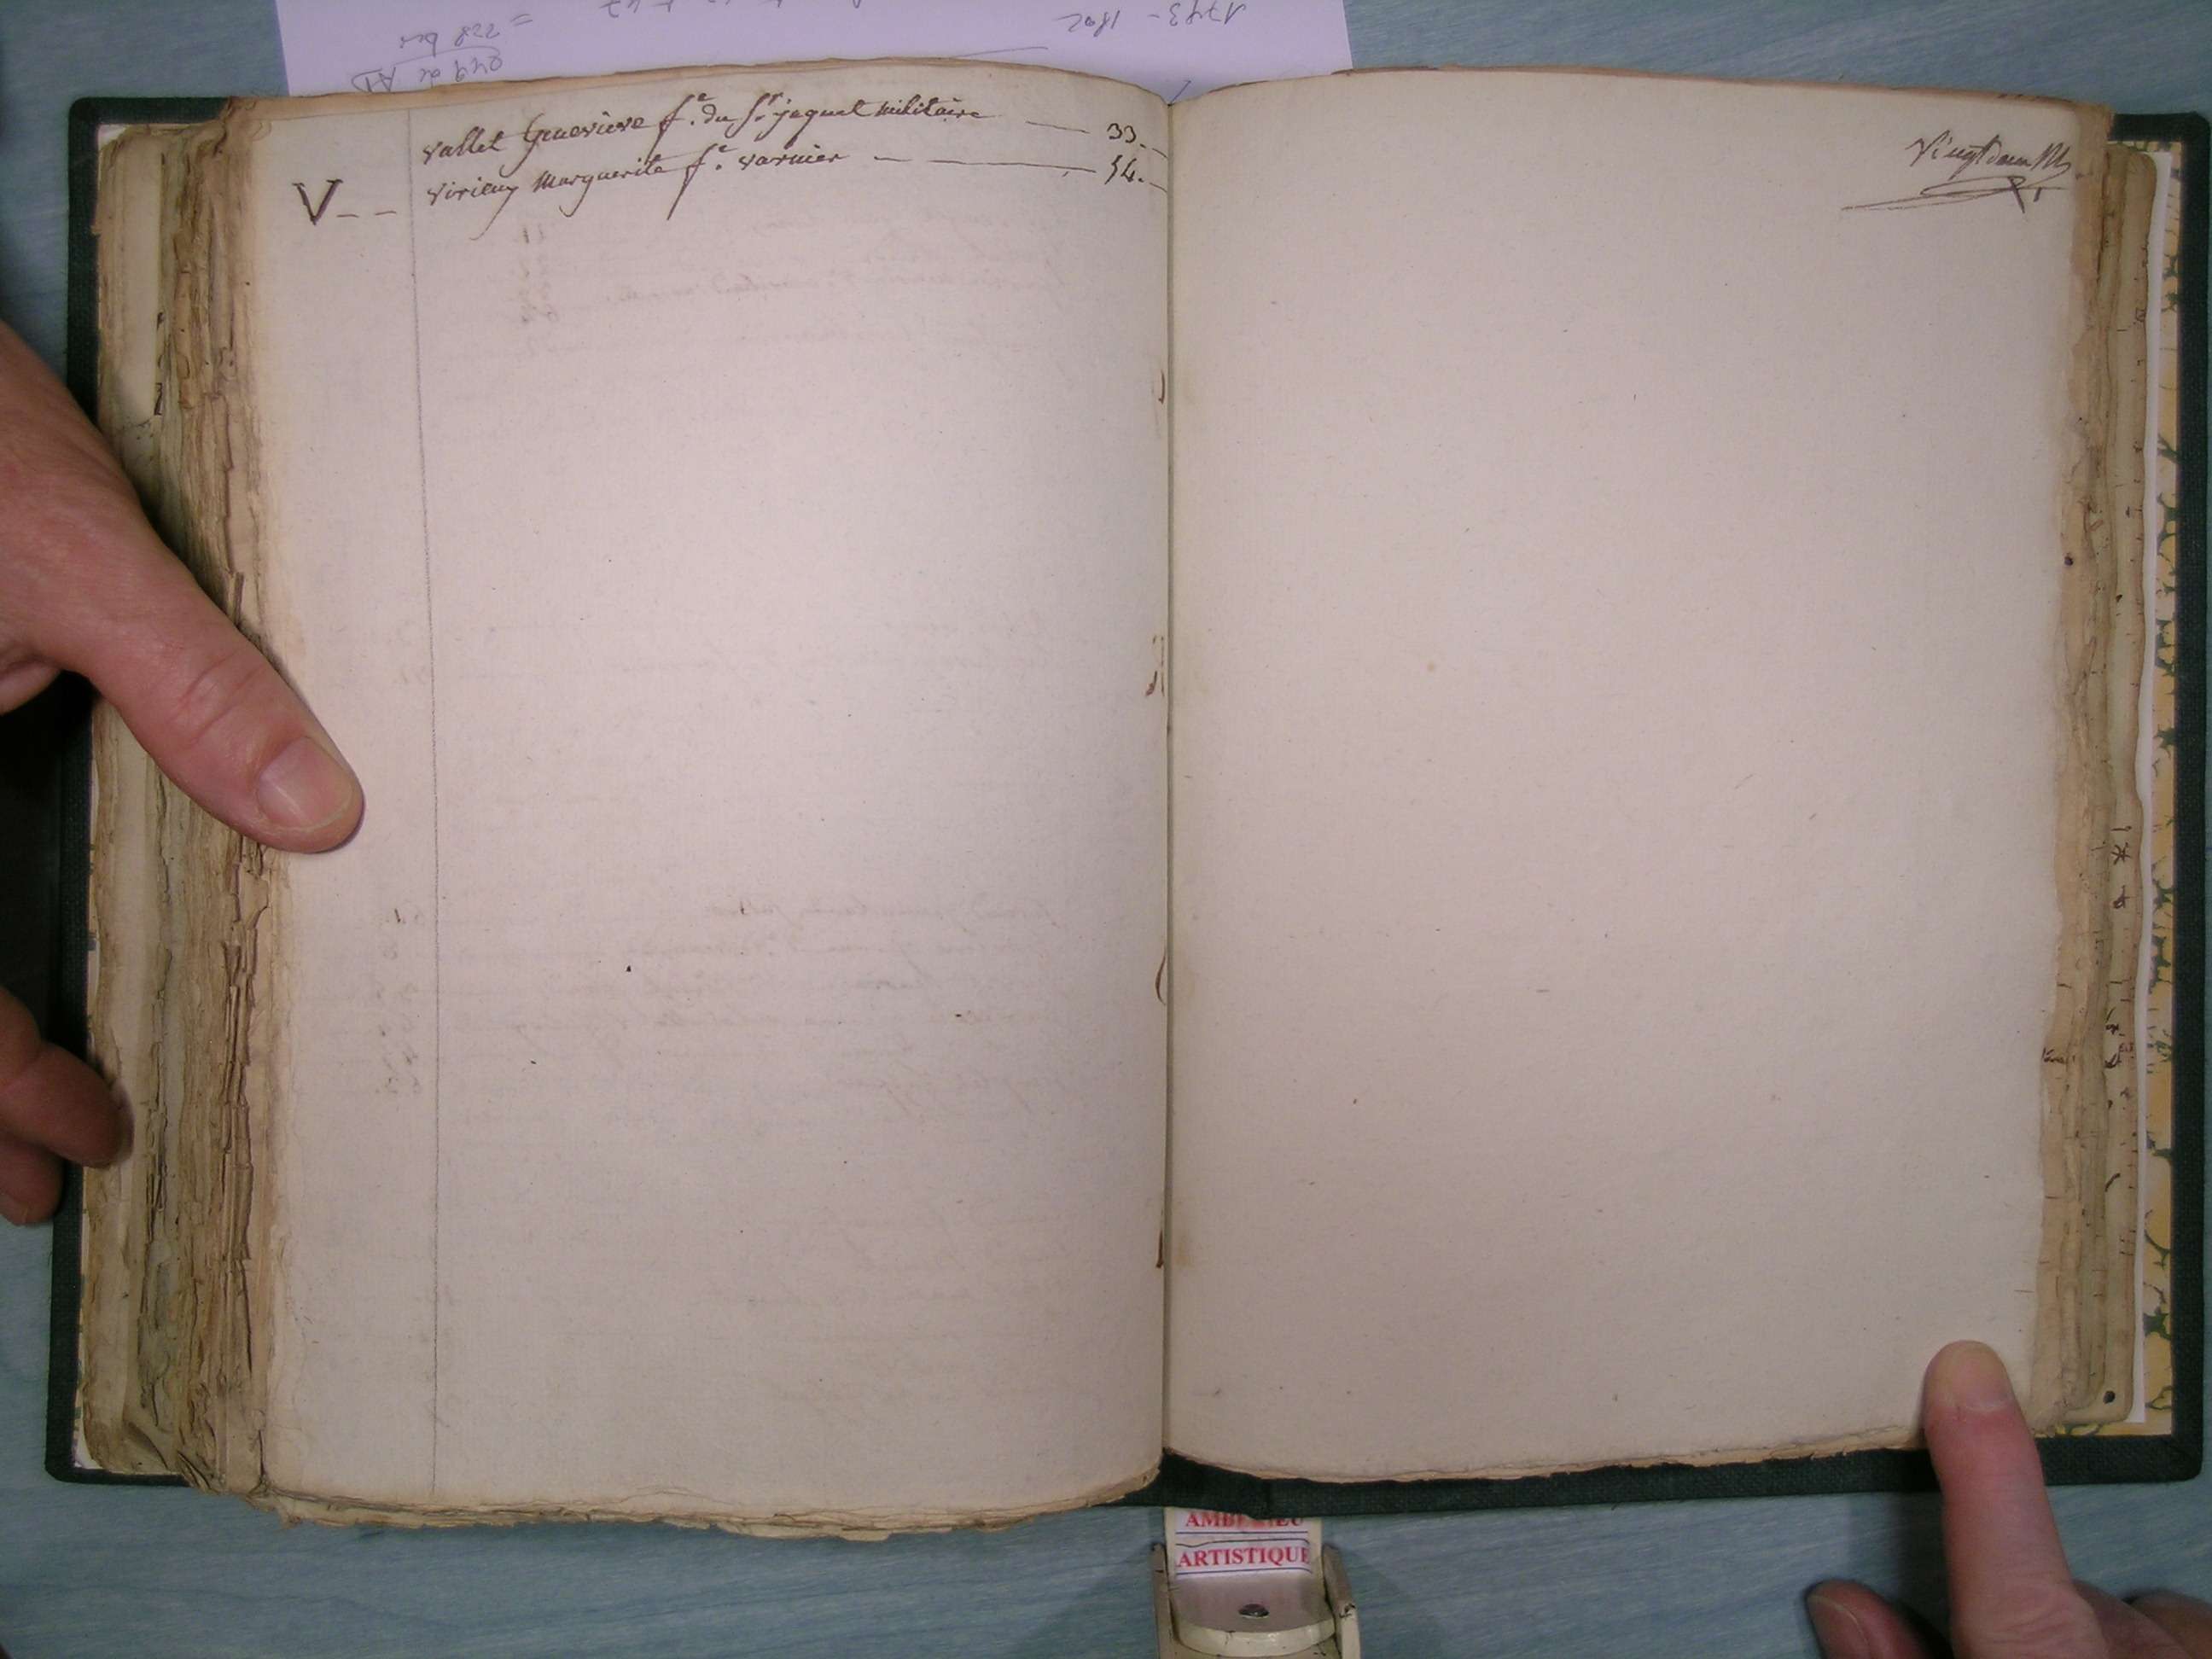 1793- 1802
= 228 bis
049 de AD
vallet Genevieve fe. du Sr. jaquet militaire — 33.
V-- virieux Marguerite fe. varnier — — 54.
Vingtdeux
AMBERIEU
ARTISTIQUE